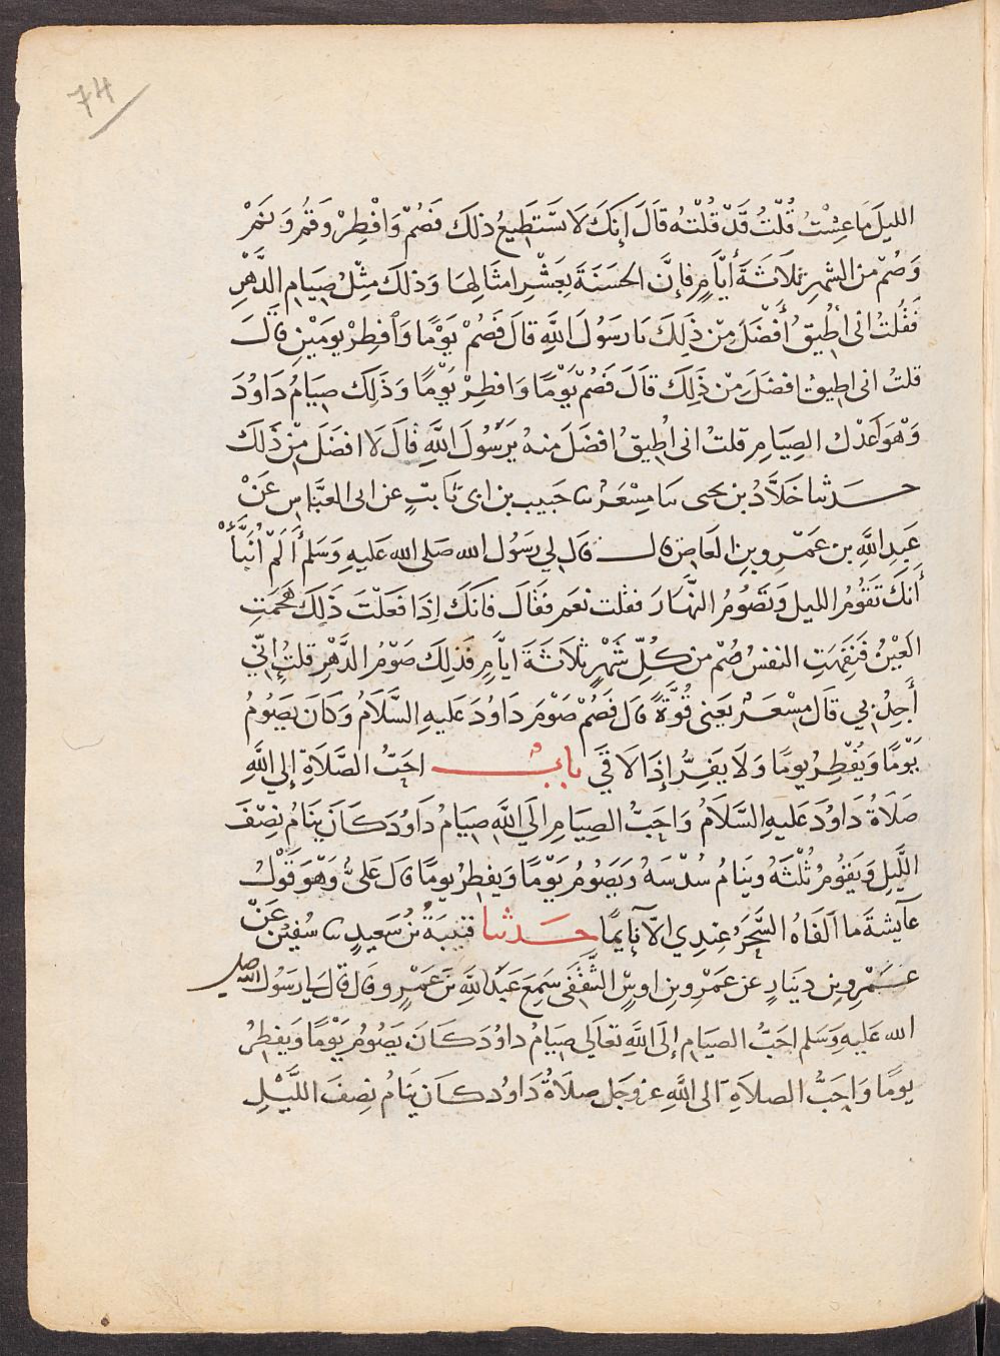 74
الليلَ مَا عِشْتُ قُلْتُ قَدْ قُلْتُه قَالَ إِنَكَ لَا تَسْتَطِيعُ ذلكَ فَصُمْ وَافْطِرْ وَقُمْ وَ نَمْ
وَصُمْ من الشهرِ ثلَاثَةَ أَيَّامٍ فإِنَّ الحسَنَةَ بِعَشْرِ امثَالِهَا وَذلكَ مِثْلُ صِيَامِ الدَّهْرِ
فَقُلتُ انى اُطِيقُ أَفْضَلَ مِنْ ذَلِكَ يَا رسَوُلَ اللَّهِ قالَ فَصُمْ يَوْمًا وَأفطِرْ يومَيْنِ قَالَ
قلتُ انى اطيقُ افضَلَ مِنْ ذَلِكَ قالَ فَصُمْ يَوْمًا وَافطِرْ يَوْمًا وَذَلِكَ صِيَامُ دَاوُدَ
وَهْوَ اَعْدَلُ الصِيَامِ قلتُ انى اُطِيقُ افضَلَ منهُ يَرَسُولَ اللَّهِ قالَ لَا افضَلَ مِنْ ذَلكَ
حــدثنا خَلَّادُ بن يحيى ثنا مِسْعَرٌ ثنا حَبيب بن ابى ثَابتٍ عن ابى العبَّاس عَنْ
عَبدِ اللَّهِ بن عَمْرِو بنِ العَاصِ قال قال لي رسَوُل الله صَلى الله عَليهِ وَسَلم أَلَمْ أُنَبَّأْ
أَنكَ تَقوُمُ الليل وَتصُومُ النَّهَارَ فقلت نعَم فقَالَ فانكَ إِذَا فعَلْتَ ذَلِكَ هَجَمَتِ
العَيْنُ وَنَفِهَتِ النفسُ صُمْ من كُلِّ شَهْرٍ ثلَاثَةَ ايّامٍ فذلِكَ صَوْمُ الدَّهْرِ قلتُ إِنّي
أَجِدُ بي قالَ مِسْعَـرٌ يَعنى قُوَّةً قال فَصُمْ صَوْمَ دَاوُدَ عَليهِ السَّلَامُ وَكَانَ يَصُومُ
يَوْمًا وَيُفْطِرُ يومًا وَلَا يَفِرُّ إِذَا لَاقَي بابٌ احَبُّ الصَّلَاةِ إلي اللَّهِ
صَلَاةُ دَاوُدَ عَليهِ السَّلَامُ وَاحَبُّ الصِيَامِ الَي اللَّهِ صِيَامُ دَاوُدَ كَانَ يَنَامُ نِصْفَ
اللَّيلِ وَيَقوُمُ ثُلْثَهُ وينَامُ سُدْسَهُ وَيَصُومُ يَوْمًا وَيفطِرُ يومًا قال عَلىٌّ وَهْوَ قَوْلُ
عَآيشةَ ما اَلفَاهُ السَّحَرُ عِندِي الَّا نَآيمًا حــدثنا قتَيبَةُ بْنُ سَعيدٍ ثنا سُفينُ عَنْ
عَـمْرِو بنِ دينَارٍ عن عَمْرِو بنِ اوسٍ الثَّقَفَى سَمِعَ عَبْدَ اللَّهِ بْنَ عَمْرٍو قال قال لي رسَوُل الله صلى
الله عَليهِ وَسَلم احَبُّ الصيَامِ إلى اللَّهِ تعَالَي صِيَامُ داوُدَ كَانَ يَصُومُ يَوْمًا وَيفطِرُ
يومًا وَاحَبُّ الصلَاةِ الى اللَّهِ عز وجَل صلَاةُ دَاوُد كانَ يَنَامُ نِصفَ اللَّيْلِ